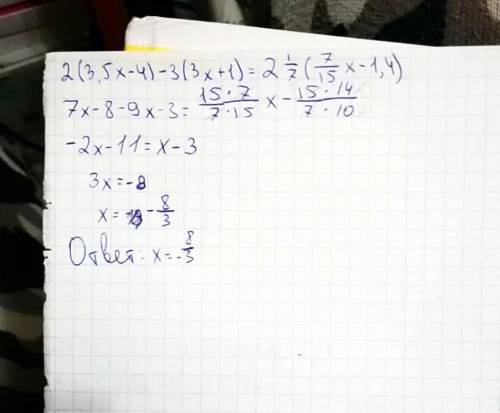 2(3,5x-4)-3(3x+1)=2 1/7 (7/15 x-1,4)
7x-8-9x-3= 15·7/7·15 x - 15·14/7·10
-2x-11=x-3
3x=-8
x= - 8/3
Ответ: x=-8/3